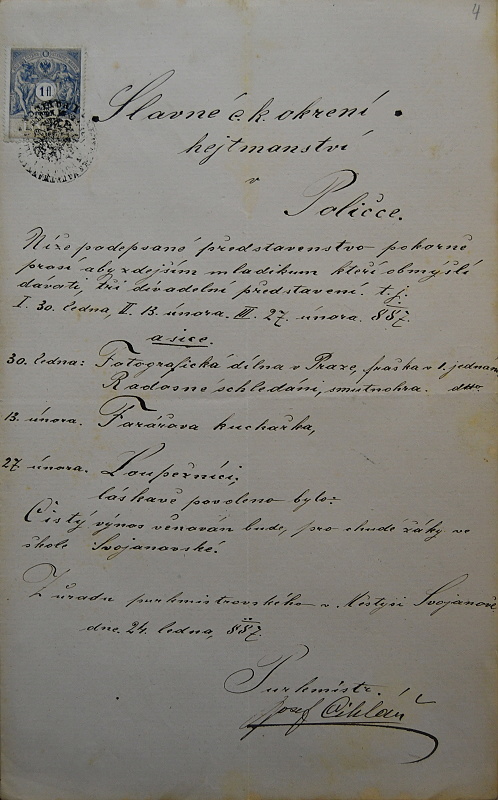 4
10
Slavné c. k. okresní
hejtmanství
v
Poličce.
Níže podepsané představenstvo pokorně
prosí aby zdejším mladíkum kteří obmýšlí
dávati, tři divadelní představení. t. j.
I. 30. ledna, II. 13. února. III. 27. února. 887.
a sice.
30. ledna: Fotografická dílna v Praze, fraška v 1. jednání
Radosné schledání, smutnohra. dtto.
13. února. Farářova kuchařka,
27. února. Loupežníci,
láskavě povoleno bylo:
Čistý výnos věnován bude, pro chudé žáky ve
škole Svojanovské.
Z úradu purkmistrovského v Městysi Svojanově
dne. 24. ledna, 887.
Purkmistr.
Josef